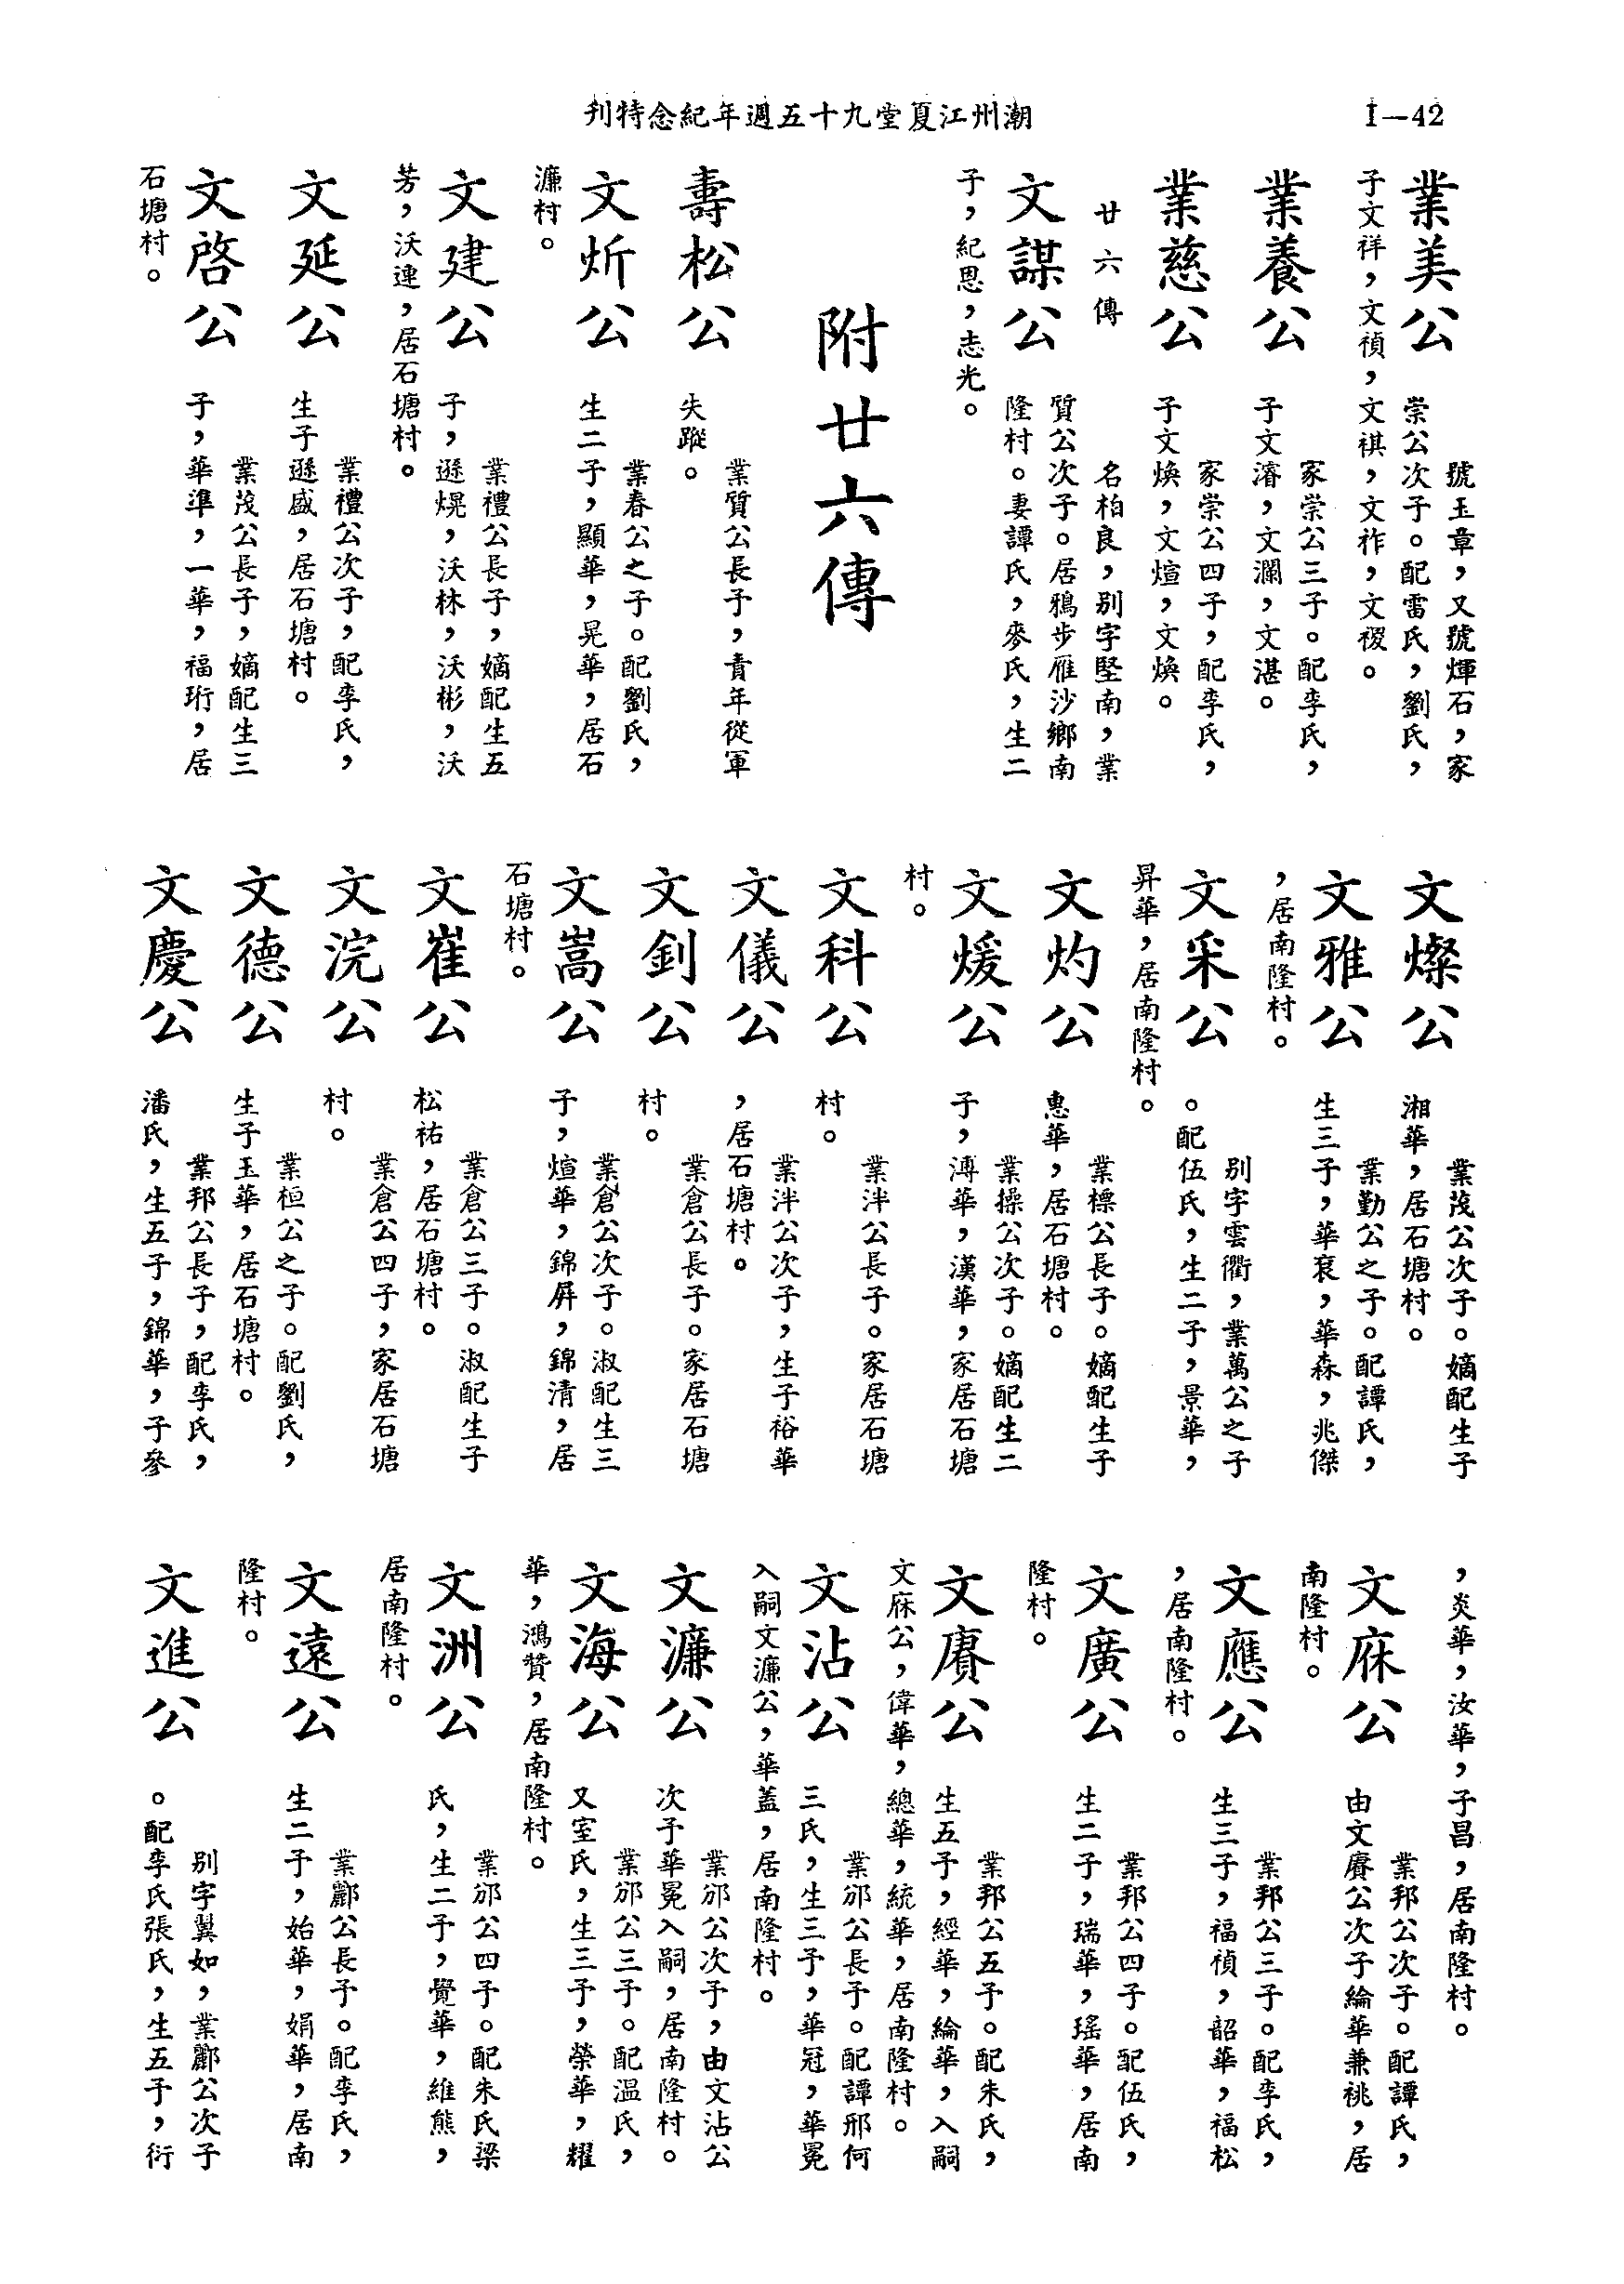 潮州江夏堂九十五週年紀念特刊
I—42
業美公
號玉章，又號煇石，家
崇公次子。配雷氏，劉氏，
子文祥，文禎，文祺，文祚，文禝。
業養公
家崇公三子。配李氏，
子文濬，文瀾，文湛。
業慈公
家崇公四子，配李氏，
子文煥，文煊，文煥。
廿六傳
文謀公
名柏良，別字堅南，業
質公次子。居鴉步雁沙鄉南
隆村。妻譚氏，麥氏，生二
子，紀恩，志光。
附廿六傳
壽松公
業質公長子，青年從軍
失蹤。
文炘公
業春公之子。配劉氏，
生二子，顯華，晃華，居石
濂村。
文建公
業禮公長子，嫡配生五
子，遜熀，沃林，沃彬，沃
芳，沃連，居石塘村。
文延公
業禮公次子，配李氏，
生子遜盛，居石塘村。
文啓公
業茂公長子，嫡配生三
子，華準，一華，福珩，居
石塘村。
文燦公
業茂公次子。嫡配生子
湘華，居石塘村。
文雅公
業勤公之子。配譚氏，
生三子，華裒，華森，兆傑
，居南隆村。
文采公
別字雲衢，業萬公之子
。配伍氏，生二子，景華，
昇華，居南隆村。
文灼公
業標公長子。嫡配生子
惠華，居石塘村。
文煖公
業操公次子。嫡配生二
子，溥華，漢華，家居石塘
村。
文科公
業泮公長子。家居石塘
村。
文儀公
業泮公次子，生子裕華
，居石塘村。
文釗公
業倉公長子。家居石塘
村。
文嵩公
業倉公次子。淑配生三
子，煊華，錦屏，錦清，居
石塘村。
文崔公
業倉公三子。淑配生子
松祐，居石塘村。
文浣公
業倉公四子，家居石塘
村。
文德公
業桓公之子。配劉氏，
生子玉華，居石塘村。
文慶公
業邦公長子，配李氏，
潘氏，生五子，錦華，子參
，炎華，汝華，子昌，居南隆村。
文庥公
業邦公次子。配譚氏，
由文賡公次子綸華兼祧，居
南隆村。
文應公
業邦公三子。配李氏，
生三子，福禎，韶華，福松
，居南隆村。
文廣公
業邦公四子。配伍氏，
生二子，瑞華，瑤華，居南
隆村。
文賡公
業邦公五子。配朱氏，
生五子，經華，綸華，入嗣
文庥公，偉華，總華，統華，居南隆村。
文沾公
業邠公長子。配譚邢何
三氏，生三子，華冠，華冕
入嗣文濂公，華蓋，居南隆村。
文濂公
業邠公次子，由文沾公
次子華冕入嗣，居南隆村。
文海公
業邠公三子。配溫氏，
又室氏，生三子，榮華，耀
華，鴻贊，居南隆村。
文洲公
業邠公四子。配朱氏梁
氏，生二子，覺華，維熊，
居南隆村。
文遠公
業酈公長子。配李氏，
生二子，始華，娟華，居南
隆村。
文進公
別字翼如，業酈公次子
。配李氏張氏，生五子，衍